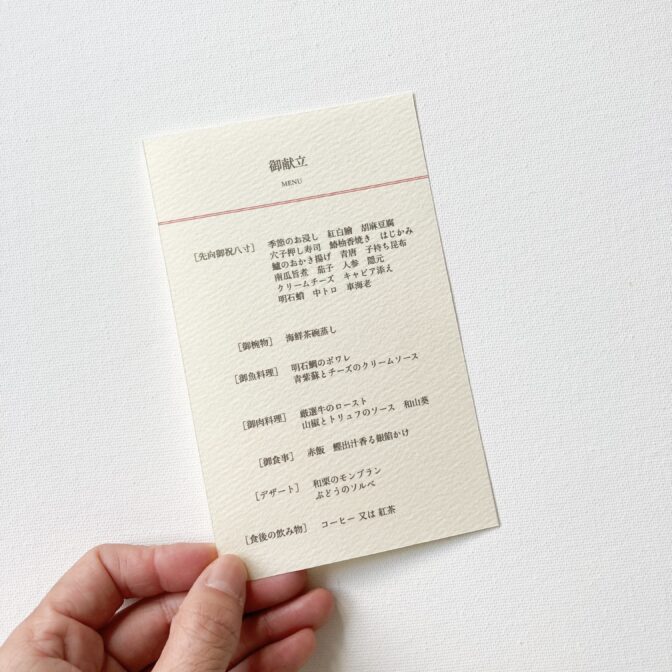 御献立
MENU
[先向御祝八寸] 季節のお浸し 紅白膾 胡麻豆腐
穴子押し寿司 鰆柚香焼き はじかみ
鱧のおかき揚げ 青唐 子持ち昆布
南瓜旨煮 茄子 人参 隠元
クリームチーズ キャビア添え
明石蛸 中トロ 車海老
[御椀物] 海鮮茶碗蒸し
[御魚料理] 明石鯛のポワレ
青紫蘇とチーズのクリームソース
[御肉料理] 厳選牛のロースト
山椒とトリュフのソース 和山葵
[御食事] 赤飯 鰹出汁香る銀餡かけ
[デザート] 和栗のモンブラン
ぶどうのソルベ
[食後の飲み物] コーヒー 又は 紅茶